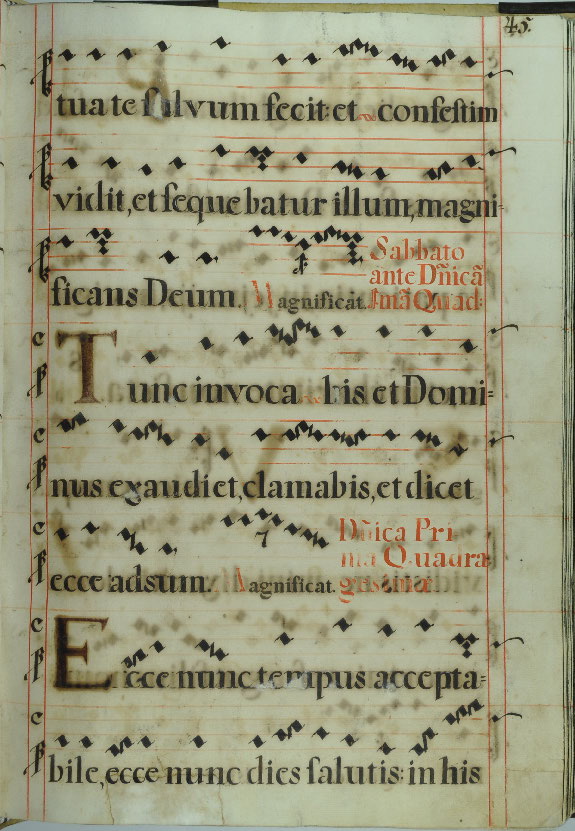 45.
tua te salvum fecit: et confestim
vidit, et sequebatur illum, magni-
ficans Deum. Magnificat. Sabbato
ante Dñicã
Imã Quad:
Tunc invocabis et Domi-
nus exaudiet, clamabis, et dicet
ecce adsum. Magnificat. Dñica Pri
ma Quadra
gesimæ
Ecce nunc tempus accepta-
bile, ecce nunc dies salutis: in his